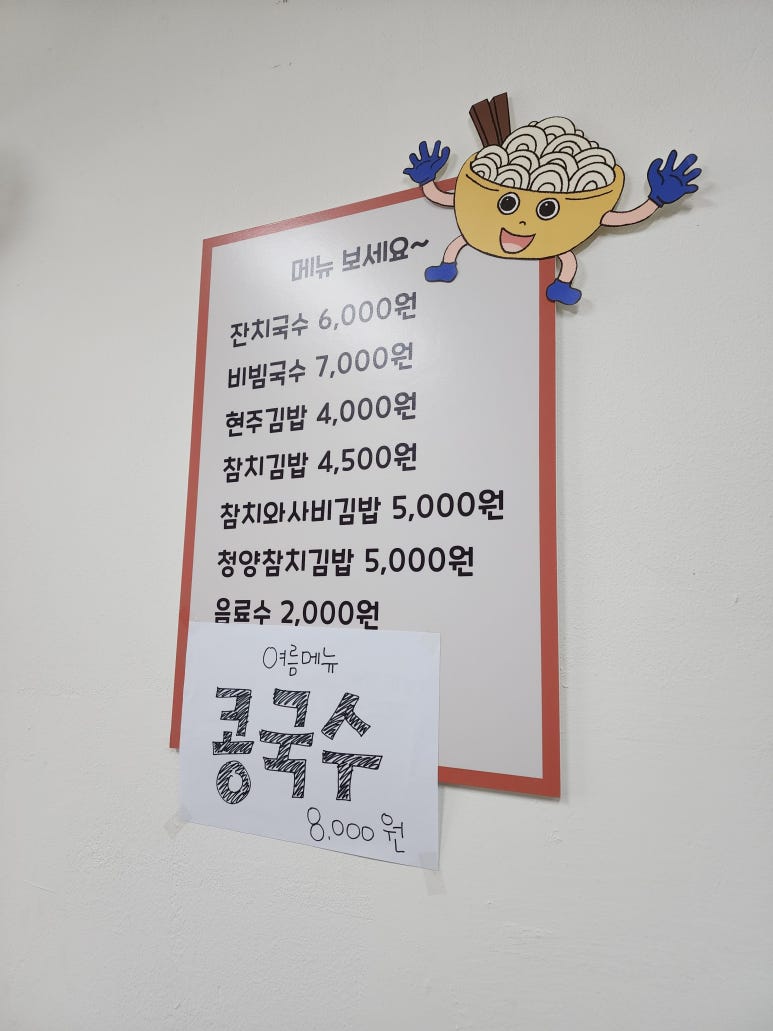 메뉴 보세요~
잔치국수 6,000원
비빔국수 7,000원
현주김밥 4,000원
참치김밥 4,500원
참치와사비김밥 5,000원
청양참치김밥 5,000원
음료수 2,000원
여름메뉴
콩국수
8,000원